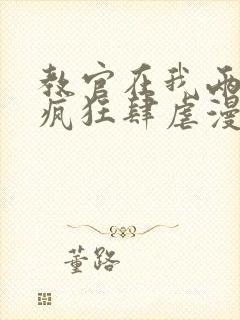 教官在我兩
瘋狂肆虐漫
董路